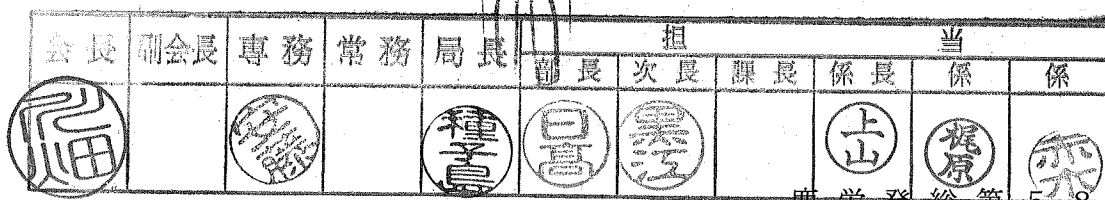 会長 副会長 専務 常務 局長 担当
部長 次長 課長 係長 係 係
種子島 日高 黒江 上山 梶原
鹿労発総第58